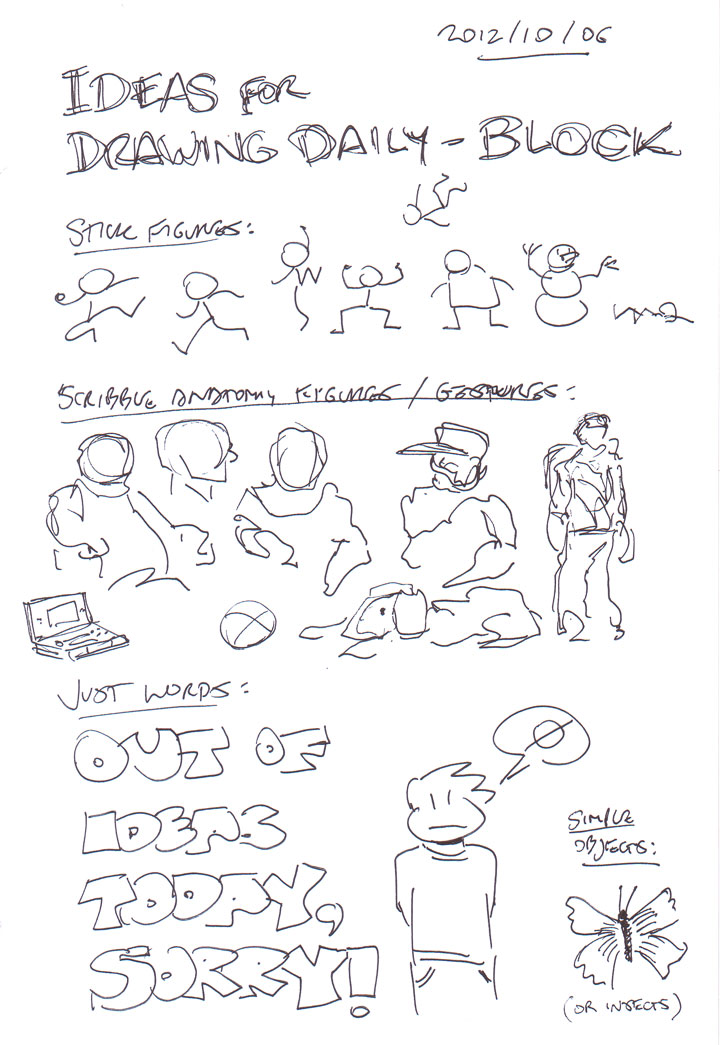 2012/10/06
IDEAS FOR
DRAWING DAILY - BLOCK
STICK FIGURES:
SCRIBBLE ANATOMY FIGURES / GESTURES:
JUST WORDS:
OUT OF
IDEAS
TODAY,
SORRY!
SIMPLE
OBJECTS:
(OR INSECTS)